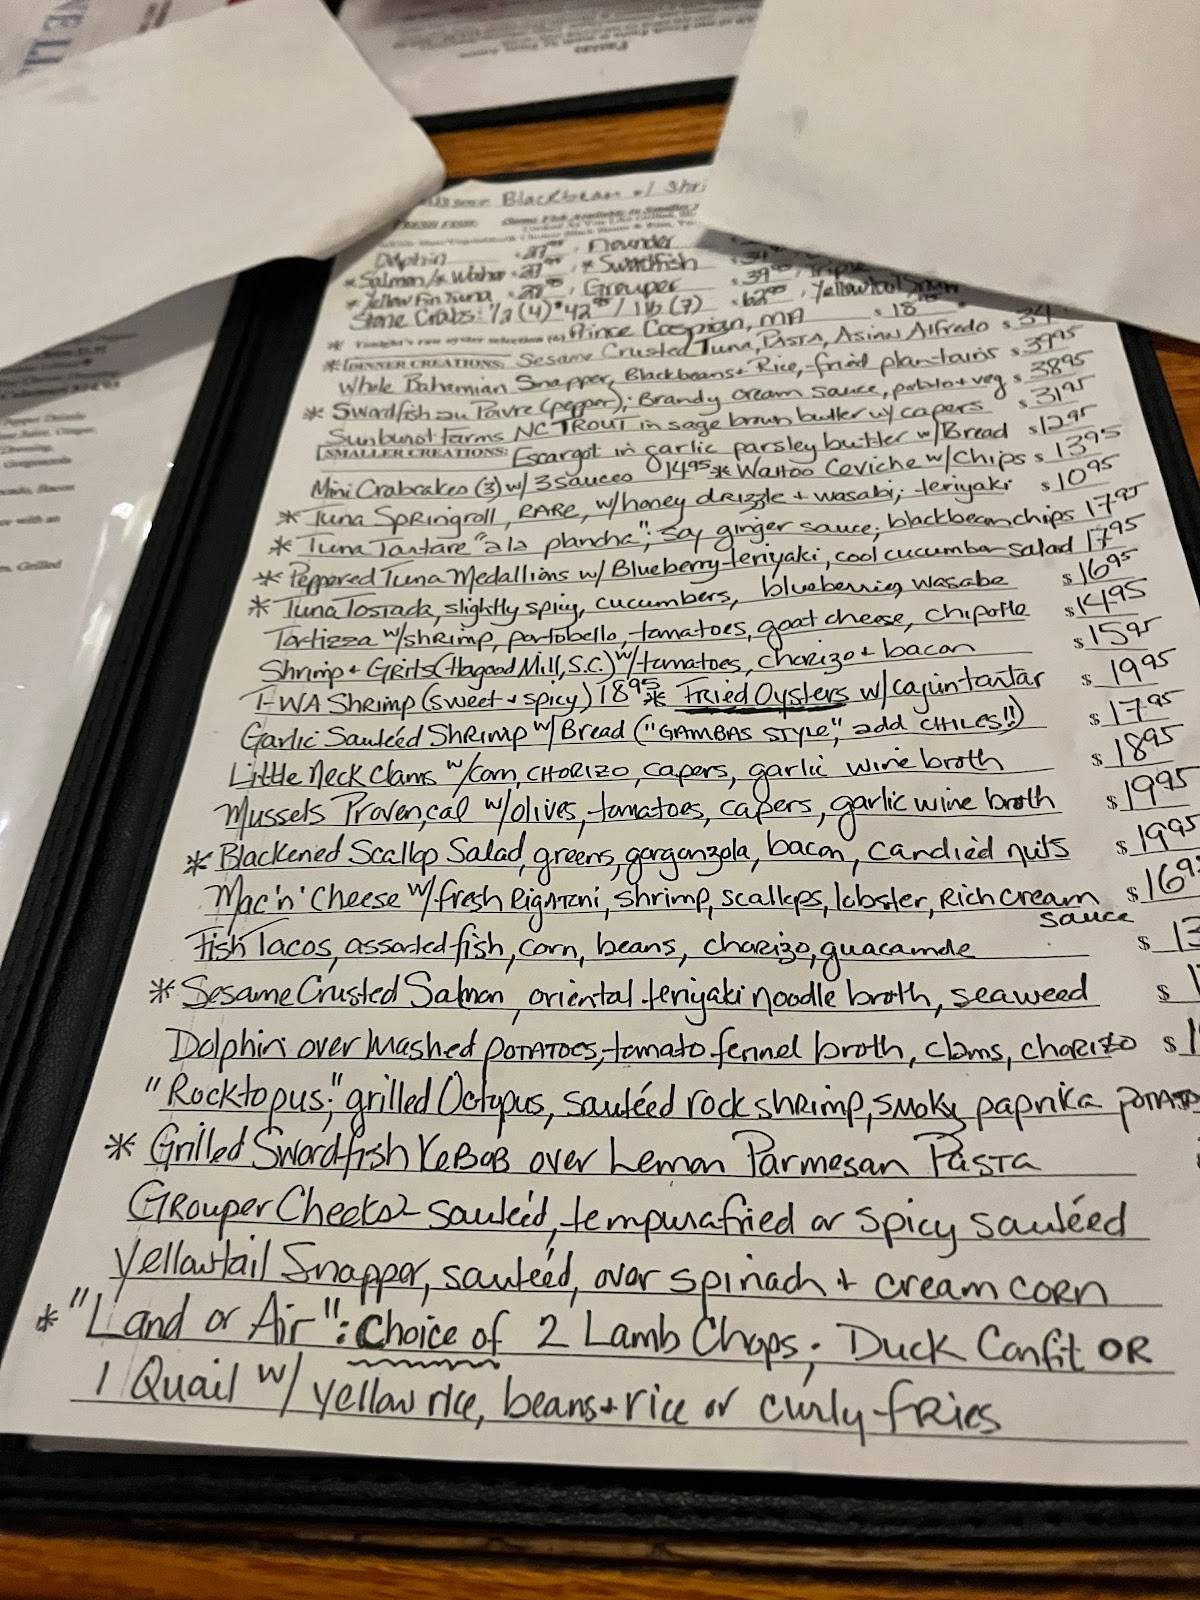 Blackbean w/ Shri
FRESH FISH:
Dolphin 27⁹⁵, Flounder
*Salmon/* Wahoo 27⁹⁵, *Swordfish
*Yellow Fin Tuna 28⁹⁵, Grouper 39⁹⁵, Triple
Stone Crabs: 1/2 (4) 42⁹⁵ / 1 lb (7) 62⁰⁰, Yellowtail Snapper
* Tonight's raw oyster selection Prince Caspian, MA $ 18
*DINNER CREATIONS: Sesame Crusted Tuna, Pasta, Asian Alfredo $ 34
Whole Bahamian Snapper, Blackbeans + Rice, fried plantains $ 39⁹⁵
* Swordfish au Poivre (pepper); Brandy cream sauce, potato + veg $ 38⁹⁵
Sunburst Farms NC TROUT in sage brown butter w/ capers $ 31⁹⁵
SMALLER CREATIONS: Escargot in garlic parsley butter w/ Bread $ 12⁹⁵
Mini Crabcakes (3) w/ 3 sauces 14⁹⁵ * Wahoo Ceviche w/ Chips $ 13⁹⁵
* Tuna Springroll, RARE, w/ honey drizzle + wasabi; teriyaki $ 10⁹⁵
* Tuna Tartare "a la plancha"; soy ginger sauce; blackbean chips 17⁹⁵
* Peppered Tuna Medallions w/ Blueberry-teriyaki, cool cucumber salad 17⁹⁵
* Tuna Tostada, slightly spicy, cucumbers, blueberries, wasabe $ 16⁹⁵
Tortizza w/ shrimp, portobello, tomatoes, goat cheese, chipotle $ 14⁹⁵
Shrimp + Grits (Hagood Mill, S.C.) w/ tomatoes, chorizo + bacon $ 15⁹⁵
T-WA Shrimp (sweet + spicy) 18⁹⁵ * Fried Oysters w/ cajun tartar $ 19⁹⁵
Garlic Sautéed Shrimp w/ Bread ("GAMBAS STYLE", add CHILES!!) $ 17⁹⁵
Little Neck Clams w/ corn, CHORIZO, capers, garlic wine broth $ 18⁹⁵
Mussels Provençal w/ olives, tomatoes, capers, garlic wine broth $ 19⁹⁵
* Blackened Scallop Salad, greens, gorgonzola, bacon, candied nuts $ 19⁹⁵
Mac 'n' Cheese w/ fresh Rigatoni, shrimp, scallops, lobster, Rich cream sauce $ 16⁹
Fish Tacos, assorted fish, corn, beans, chorizo, guacamole $ 13
* Sesame Crusted Salmon, oriental teriyaki noodle broth, seaweed $ 1
Dolphin over Mashed POTATOES, tomato fennel broth, clams, chorizo $ 1
"Rocktopus;" grilled Octopus, sautéed rock shrimp, smoky paprika potato
* Grilled Swordfish KeBoB over Lemon Parmesan Pasta
Grouper Cheeks - sautéed, tempura fried or spicy sautéed
Yellowtail Snapper, sautéed, over spinach + cream corn
* "Land or Air": Choice of 2 Lamb Chops; Duck Confit OR
1 Quail w/ yellow rice, beans + rice or curly fries